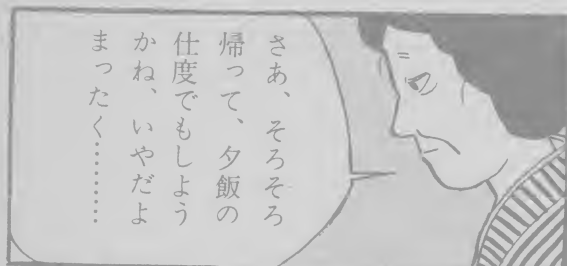 さあ、そろそろ
帰って、夕飯の
仕度でもしよう
かね、いやだよ
まったく………